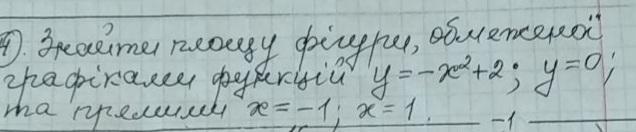 4). Знайти площу фігури, обмеженої
графіками функцій y=-x²+2; y=0;
та прямими x=-1; x=1.
-1